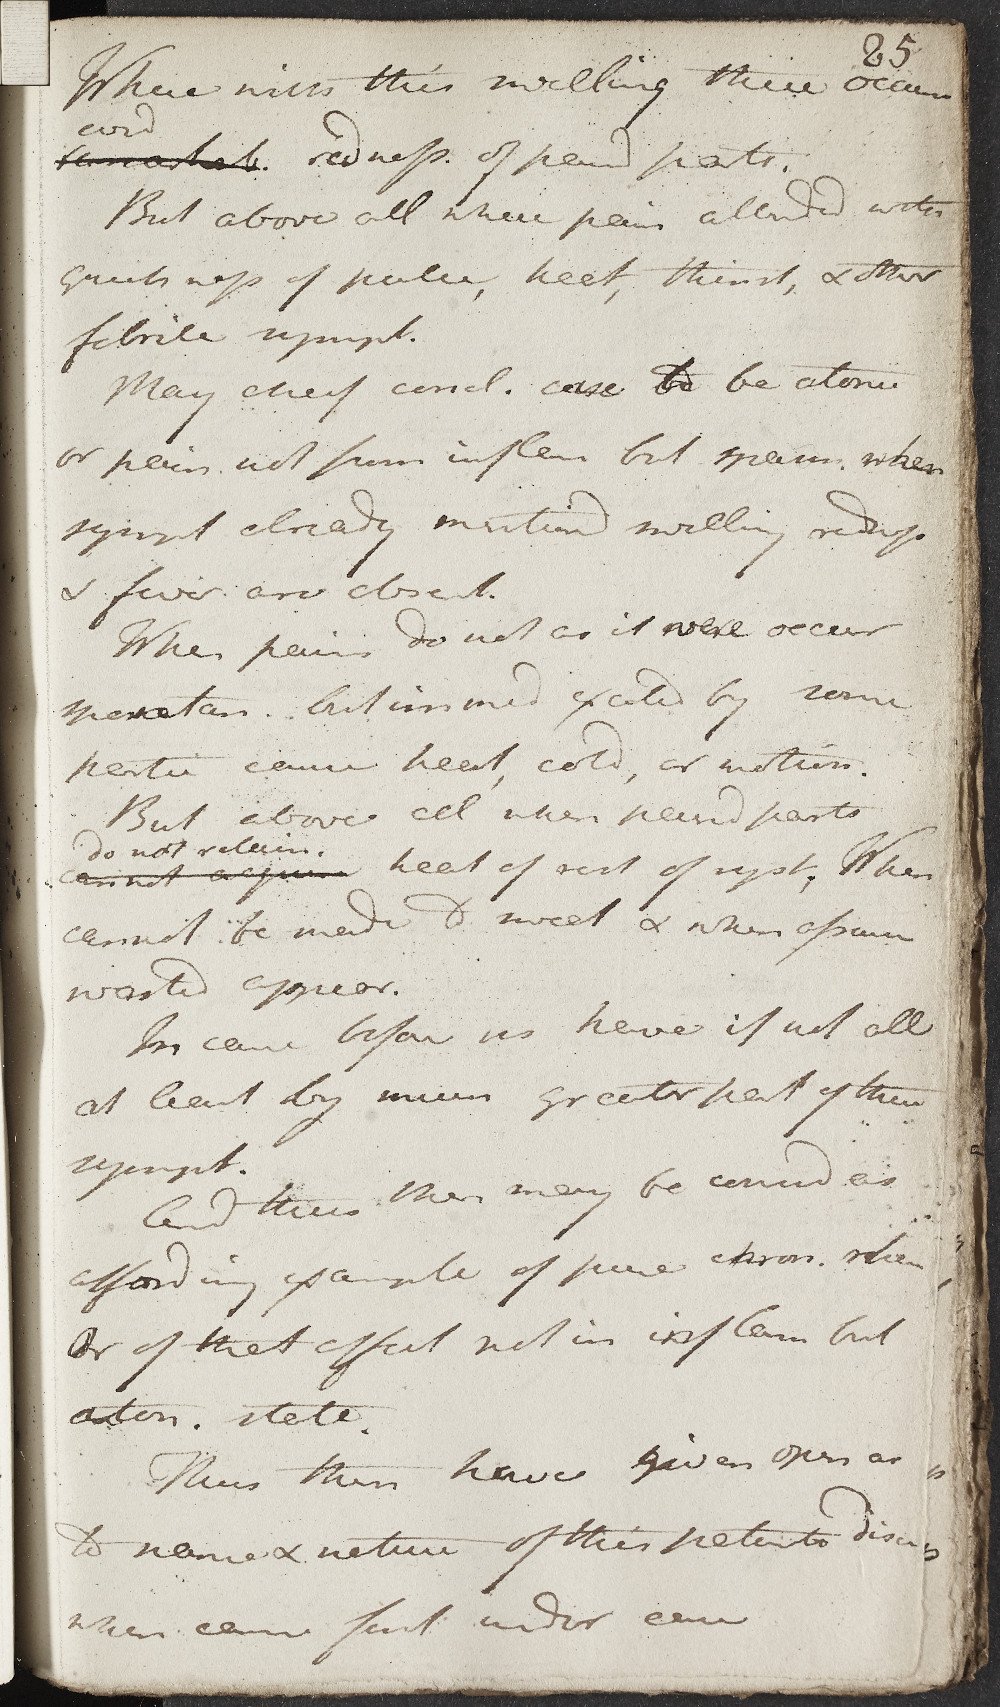 25
Where with this swelling there occurs
evid
remarkab. redness. of paind parts.
But above all where pain attended with
quickness of pulse, heat, thirst, & other
febrile sympt.
May chiefly concl. case to be atonic
or pain not from inflam but spasm. when
sympt already mentiond swelling redness
& fever are absent.
When pains do not as it were occur
spontan. but immed excited by some
partic cause heat, cold, or motion.
But above all when paind parts
do not retain.
cannot acquire heat of rest of syst, When
cannot be made to sweat & when assume
wasted appear.
In case before us have if not all
at least by much greater part of these
sympt.
And thus then may be considd as
affording example of pure chron. rheum,
Or of that affect not in inflam but
aton. state.
Thus then have given opin as
to name & nature of this patients disease
when came first under care